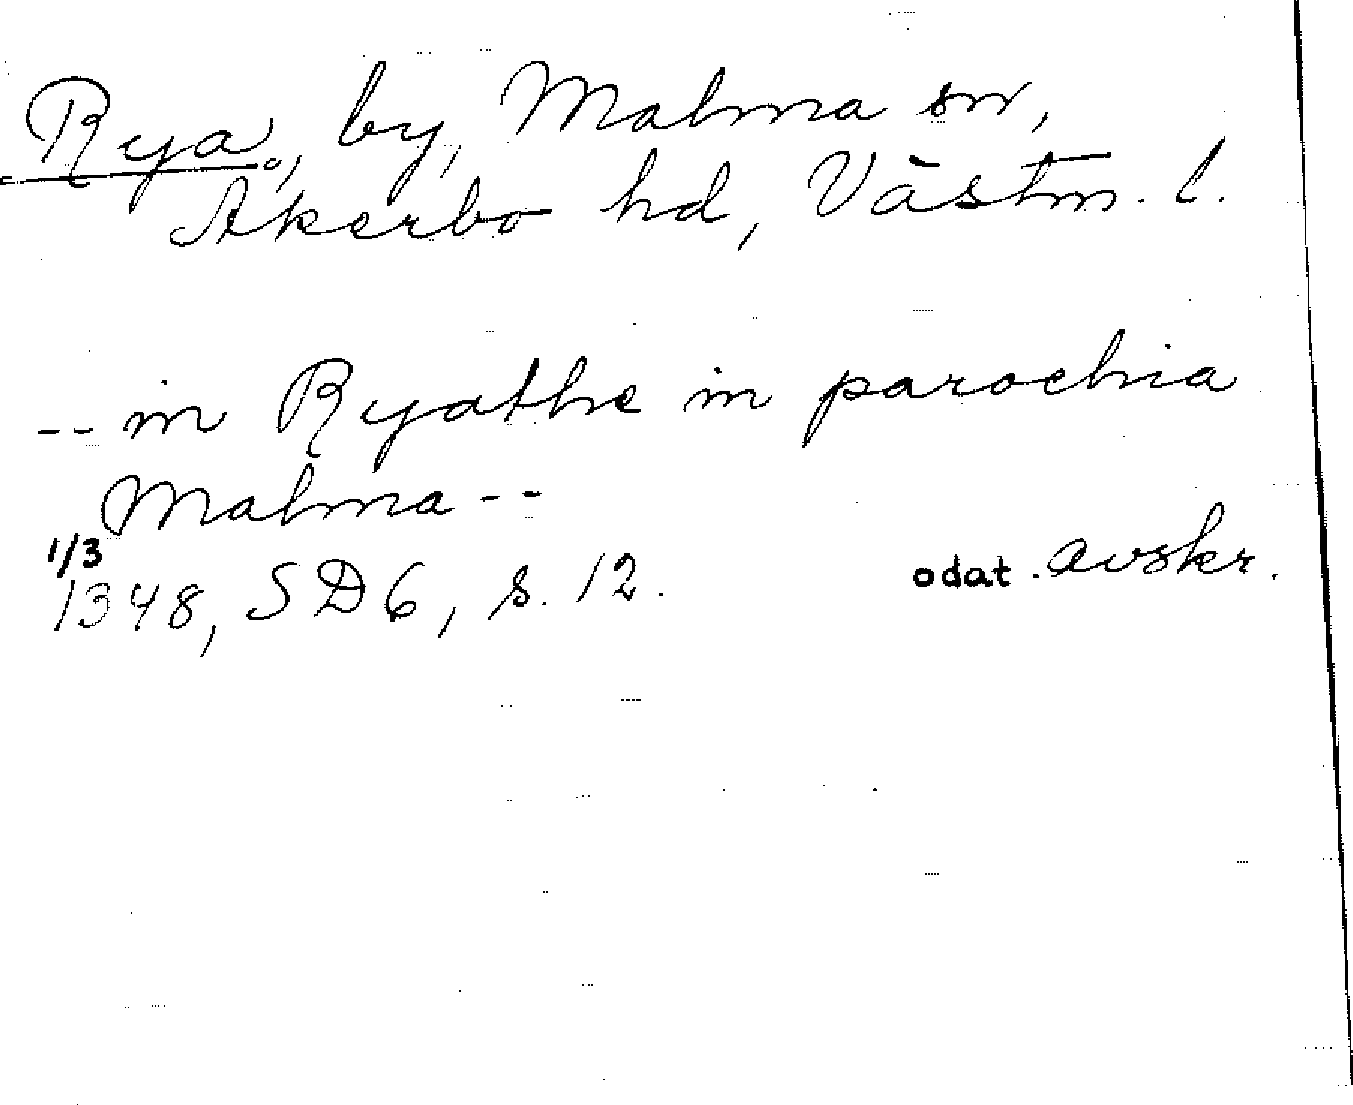 Rya, by, Malma sn,
Åkerbo hd, Västm. l.
-- in Ryathe in parochia
Malma --
1/3
1348, SD 6, s. 12. odat. avskr.